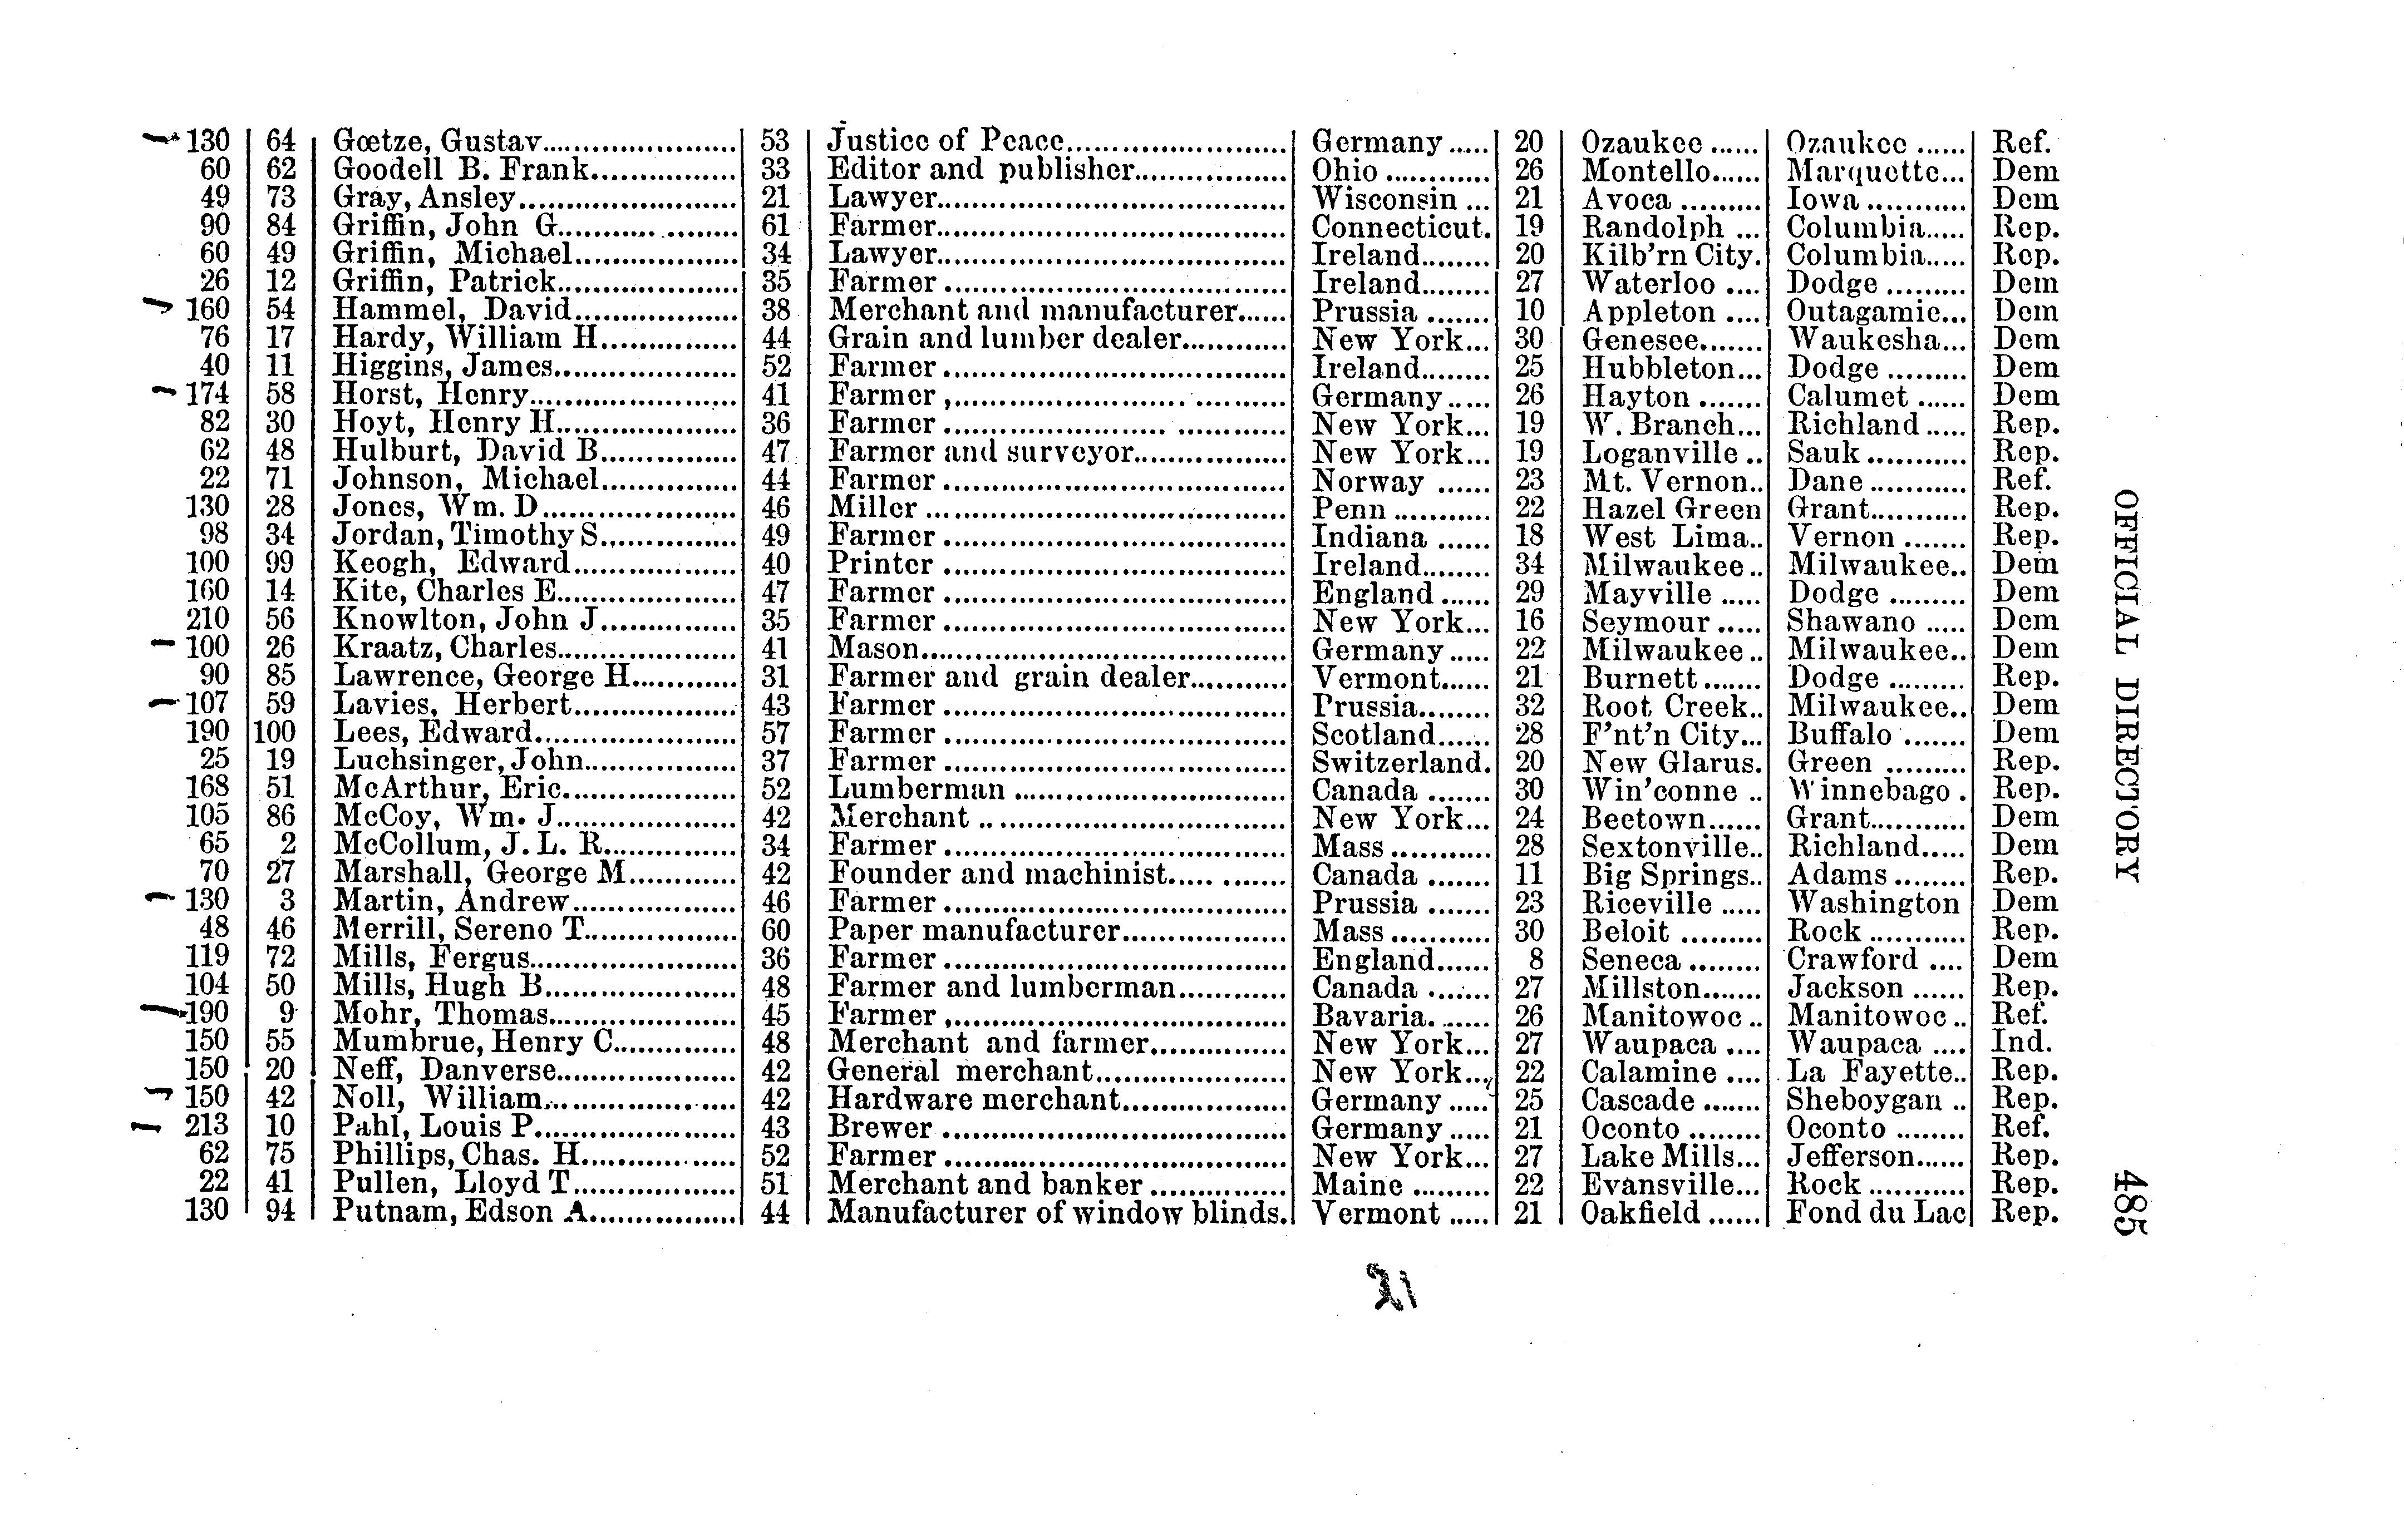 130 | 64 | Gœtze, Gustav | 53 | Justice of Peace | Germany | 20 | Ozaukee | Ozaukee | Ref.
60 | 62 | Goodell B. Frank | 33 | Editor and publisher | Ohio | 26 | Montello | Marquette | Dem
49 | 73 | Gray, Ansley | 21 | Lawyer | Wisconsin | 21 | Avoca | Iowa | Dem
90 | 84 | Griffin, John G | 61 | Farmer | Connecticut. | 19 | Randolph | Columbia | Rep.
60 | 49 | Griffin, Michael | 34 | Lawyer | Ireland | 20 | Kilb'rn City. | Columbia | Rep.
26 | 12 | Griffin, Patrick | 35 | Farmer | Ireland | 27 | Waterloo | Dodge | Dem
160 | 54 | Hammel, David | 38 | Merchant and manufacturer | Prussia | 10 | Appleton | Outagamie | Dem
76 | 17 | Hardy, William H | 44 | Grain and lumber dealer | New York | 30 | Genesee | Waukesha | Dem
40 | 11 | Higgins, James | 52 | Farmer | Ireland | 25 | Hubbleton | Dodge | Dem
174 | 58 | Horst, Henry | 41 | Farmer | Germany | 26 | Hayton | Calumet | Dem
82 | 30 | Hoyt, Henry H | 36 | Farmer | New York | 19 | W. Branch | Richland | Rep.
62 | 48 | Hulburt, David B | 47 | Farmer and surveyor | New York | 19 | Loganville | Sauk | Rep.
22 | 71 | Johnson, Michael | 44 | Farmer | Norway | 23 | Mt. Vernon | Dane | Ref.
130 | 28 | Jones, Wm. D | 46 | Miller | Penn | 22 | Hazel Green | Grant | Rep.
98 | 34 | Jordan, Timothy S. | 49 | Farmer | Indiana | 18 | West Lima | Vernon | Rep.
100 | 99 | Keogh, Edward | 40 | Printer | Ireland | 34 | Milwaukee | Milwaukee | Dem
160 | 14 | Kite, Charles E | 47 | Farmer | England | 29 | Mayville | Dodge | Dem
210 | 56 | Knowlton, John J | 35 | Farmer | New York | 16 | Seymour | Shawano | Dem
100 | 26 | Kraatz, Charles | 41 | Mason | Germany | 22 | Milwaukee | Milwaukee | Dem
90 | 85 | Lawrence, George H | 31 | Farmer and grain dealer | Vermont | 21 | Burnett | Dodge | Rep.
107 | 59 | Lavies, Herbert | 43 | Farmer | Prussia | 32 | Root Creek | Milwaukee | Dem
190 | 100 | Lees, Edward | 57 | Farmer | Scotland | 28 | F'nt'n City | Buffalo | Dem
25 | 19 | Luchsinger, John | 37 | Farmer | Switzerland. | 20 | New Glarus. | Green | Rep.
168 | 51 | McArthur, Eric | 52 | Lumberman | Canada | 30 | Win'conne | Winnebago | Rep.
105 | 86 | McCoy, Wm. J | 42 | Merchant | New York | 24 | Beetown | Grant | Dem
65 | 2 | McCollum, J. L. R | 34 | Farmer | Mass | 28 | Sextonville | Richland | Dem
70 | 27 | Marshall, George M | 42 | Founder and machinist | Canada | 11 | Big Springs | Adams | Rep.
130 | 3 | Martin, Andrew | 46 | Farmer | Prussia | 23 | Riceville | Washington | Dem
48 | 46 | Merrill, Sereno T | 60 | Paper manufacturer | Mass | 30 | Beloit | Rock | Rep.
119 | 72 | Mills, Fergus | 36 | Farmer | England | 8 | Seneca | Crawford | Dem
104 | 50 | Mills, Hugh B | 48 | Farmer and lumberman | Canada | 27 | Millston | Jackson | Rep.
190 | 9 | Mohr, Thomas | 45 | Farmer | Bavaria | 26 | Manitowoc | Manitowoc | Ref.
150 | 55 | Mumbrue, Henry C | 48 | Merchant and farmer | New York | 27 | Waupaca | Waupaca | Ind.
150 | 20 | Neff, Danverse | 42 | General merchant | New York | 22 | Calamine | La Fayette | Rep.
150 | 42 | Noll, William | 42 | Hardware merchant | Germany | 25 | Cascade | Sheboygan | Rep.
213 | 10 | Pahl, Louis P | 43 | Brewer | Germany | 21 | Oconto | Oconto | Ref.
62 | 75 | Phillips, Chas. H | 52 | Farmer | New York | 27 | Lake Mills | Jefferson | Rep.
22 | 41 | Pullen, Lloyd T | 51 | Merchant and banker | Maine | 22 | Evansville | Rock | Rep.
130 | 94 | Putnam, Edson A | 44 | Manufacturer of window blinds. | Vermont | 21 | Oakfield | Fond du Lac | Rep.
OFFICIAL DIRECTORY 485